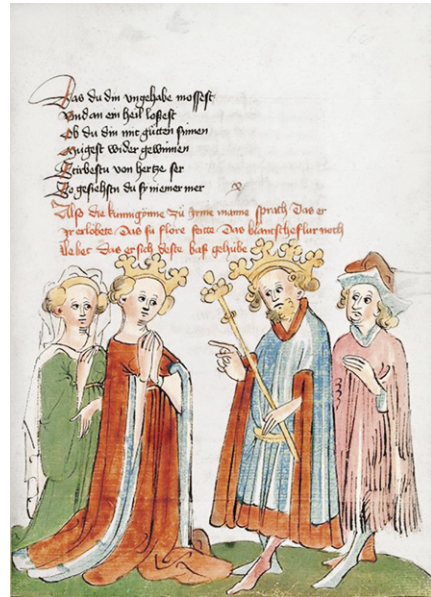 Das du din vngehabe mossest
Vnd an ein heil lossest
Ob du din mit gůtten sinnen
Mugest wider gewinnen
Stirbestu von hertze ser
So gesiehstu su niemer mer
Also die kunnigonne zů irme manne sprach Das er
ir erlobete Das su flore seite Das blantscheflur noch
lebet Das er sich deste bas gehube